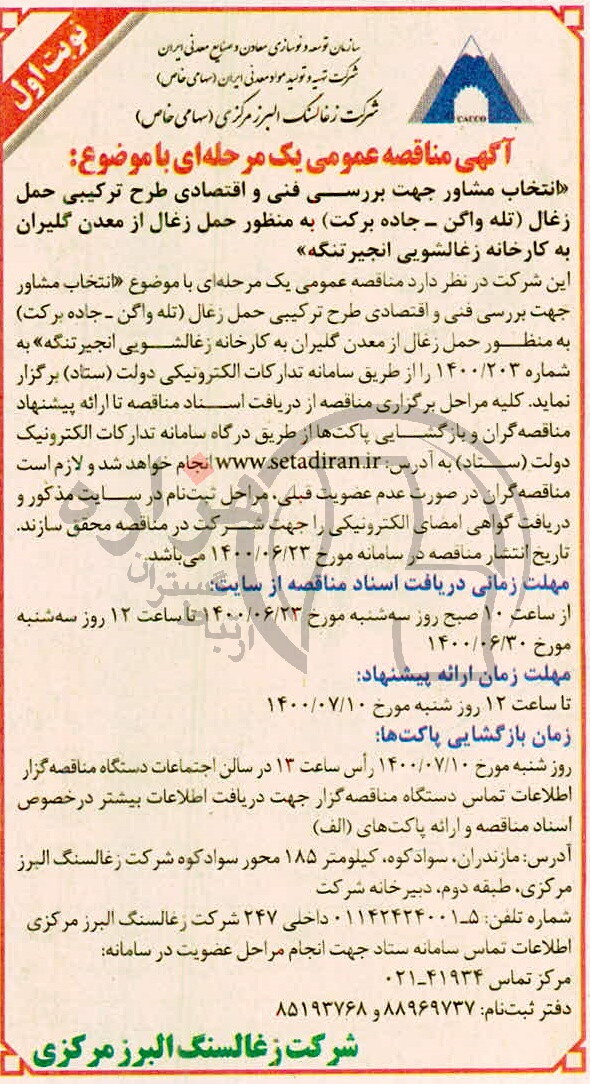 نوبت اول
سازمان توسعه و نوسازی معادن و صنایع معدنی ایران
شرکت تهیه و تولید مواد معدنی ایران (سهامی خاص)
شرکت زغالسنگ البرز مرکزی (سهامی خاص)
CACCO
آگهی مناقصه عمومی یک مرحله‌ای با موضوع:
«انتخاب مشاور جهت بررسی فنی و اقتصادی طرح ترکیبی حمل
زغال (تله واگن ـ جاده برکت) به منظور حمل زغال از معدن گلیران
به کارخانه زغالشویی انجیرتنگه»
این شرکت در نظر دارد مناقصه عمومی یک مرحله‌ای با موضوع «انتخاب مشاور
جهت بررسی فنی و اقتصادی طرح ترکیبی حمل زغال (تله واگن ـ جاده برکت)
به منظور حمل زغال از معدن گلیران به کارخانه زغالشویی انجیرتنگه» به
شماره ۱۴۰۰/۲۰۳ را از طریق سامانه تدارکات الکترونیکی دولت (ستاد) برگزار
نماید. کلیه مراحل برگزاری مناقصه از دریافت اسناد مناقصه تا ارائه پیشنهاد
مناقصه‌گران و بازگشایی پاکت‌ها از طریق درگاه سامانه تدارکات الکترونیک
دولت (ستاد) به آدرس: www.setadiran.ir انجام خواهد شد و لازم است
مناقصه‌گران در صورت عدم عضویت قبلی، مراحل ثبت‌نام در سایت مذکور و
دریافت گواهی امضای الکترونیکی را جهت شرکت در مناقصه محقق سازند.
تاریخ انتشار مناقصه در سامانه مورخ ۱۴۰۰/۰۶/۲۳ می‌باشد.
مهلت زمانی دریافت اسناد مناقصه از سایت:
از ساعت ۱۰ صبح روز سه‌شنبه مورخ ۱۴۰۰/۰۶/۲۳ تا ساعت ۱۲ روز سه‌شنبه
مورخ ۱۴۰۰/۰۶/۳۰
مهلت زمان ارائه پیشنهاد:
تا ساعت ۱۲ روز شنبه مورخ ۱۴۰۰/۰۷/۱۰
زمان بازگشایی پاکت‌ها:
روز شنبه مورخ ۱۴۰۰/۰۷/۱۰ رأس ساعت ۱۳ در سالن اجتماعات دستگاه مناقصه‌گزار
اطلاعات تماس دستگاه مناقصه‌گزار جهت دریافت اطلاعات بیشتر درخصوص
اسناد مناقصه و ارائه پاکت‌های (الف)
آدرس: مازندران، سوادکوه، کیلومتر ۱۸۵ محور سوادکوه شرکت زغالسنگ البرز
مرکزی، طبقه دوم، دبیرخانه شرکت
شماره تلفن: ۵ـ۰۱۱۴۲۴۲۴۰۰۱ داخلی ۲۴۷ شرکت زغالسنگ البرز مرکزی
اطلاعات تماس سامانه ستاد جهت انجام مراحل عضویت در سامانه:
مرکز تماس ۴۱۹۳۴ـ۰۲۱
دفتر ثبت‌نام: ۸۸۹۶۹۷۳۷ و ۸۵۱۹۳۷۶۸
شرکت زغالسنگ البرز مرکزی